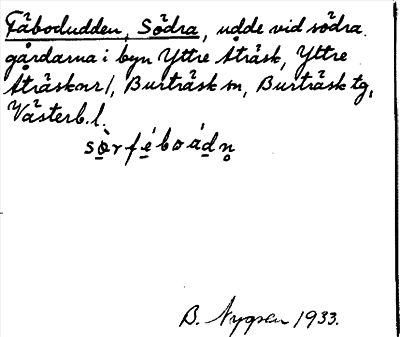 Fäbodudden, Södra, udde vid södra
gårdarna i byn Yttre Åträsk, Yttre
Åträsk nr 1, Burträsk sn, Burträsk tg,
Västerb. l.
sò̤rfé̱boá̱dn̥
B. Nygren 1933.